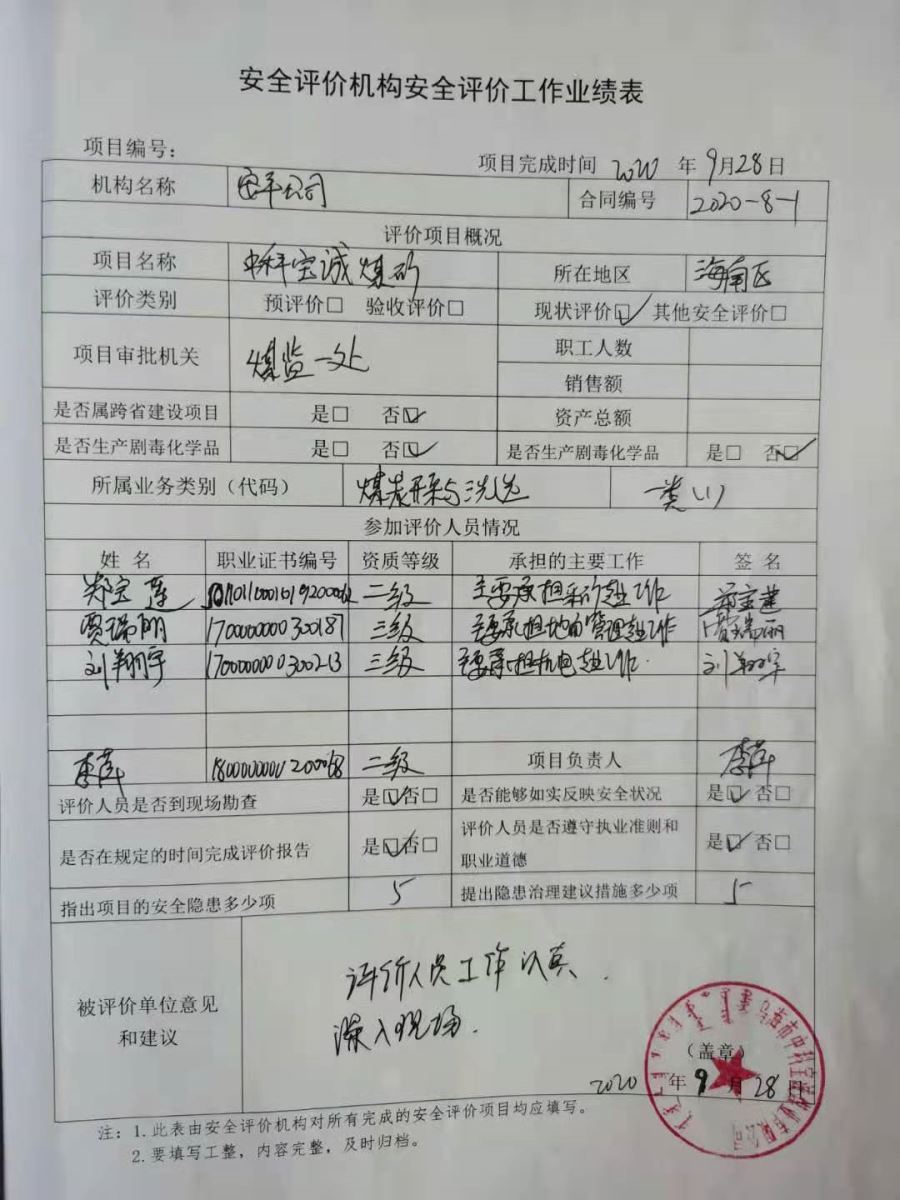 安全评价机构安全评价工作业绩表
项目编号： 项目完成时间 2020 年 9月28日
机构名称 安平公司 合同编号 2020-8-1
评价项目概况
项目名称 中科宝诚煤矿 所在地区 海南区
评价类别 预评价□ 验收评价□ 现状评价☑ 其他安全评价□
项目审批机关 煤监一处 职工人数
销售额
是否属跨省建设项目 是□ 否☑ 资产总额
是否生产剧毒化学品 是□ 否☑ 是否生产剧毒化学品 是□ 否☑
所属业务类别（代码） 煤炭开采与洗选 一类(1)
参加评价人员情况
姓 名 职业证书编号 资质等级 承担的主要工作 签 名
郑宝莲 二级 主要承担采矿专业工作 郑宝莲
贾瑞丽 1700000000300187 三级 主要承担地面管理专业工作 贾瑞丽
刘翔宇 1700000000300213 三级 主要承担机电专业工作. 刘翔宇
李萍 1800000000200068 二级 项目负责人 李萍
评价人员是否到现场勘查 是☑否□ 是否能够如实反映安全状况 是☑否□
是否在规定的时间完成评价报告 是☑否□ 评价人员是否遵守执业准则和
职业道德 是☑否□
指出项目的安全隐患多少项 5 提出隐患治理建议措施多少项 5
被评价单位意见
和建议
评价人员工作认真.
深入现场.
（盖章）
2020 年 9 月 28 日
注：1.此表由安全评价机构对所有完成的安全评价项目均应填写。
2.要填写工整，内容完整，及时归档。